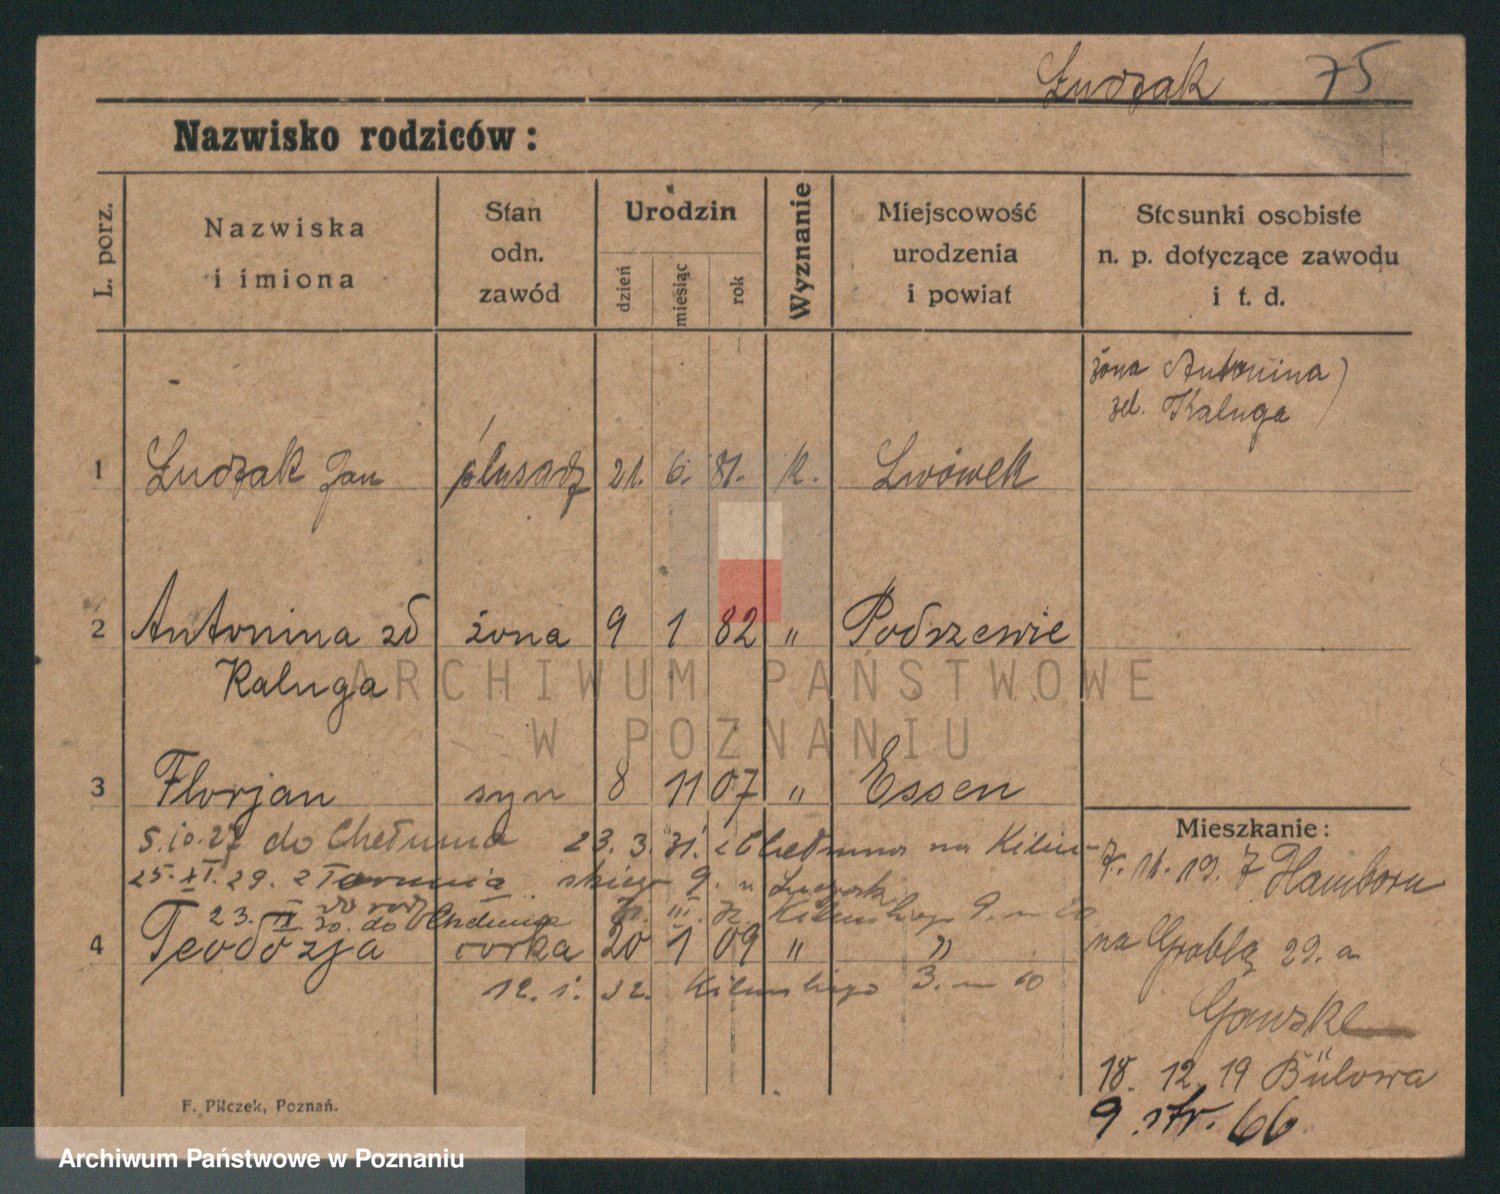 Ludzak 75
Nazwisko rodziców:
L. porz.
Nazwiska
i imiona
Stan
odn.
zawód
Urodzin
dzień
miesiąc
rok
Wyznanie
Miejscowość
urodzenia
i powiat
Stosunki osobiste
n. p. dotyczące zawodu
i t. d.
żona Antonina
zd. Kaluga
1 Ludzak Jan 21. 6. 81. k. Lwówek
2 Antonina zd żona 9 1 82 " Podrzewie
Kaluga
ARCHIWUM PAŃSTWOWE
W POZNANIU
3 Florjan syn 8 11 07 " Essen
5.10.27 do Chełmna 23. 3. 31. z Chełmna na Kiliń-
25. XI. 29. z Torunia skiego 9.
23. do Chełmna III. Kilińskiego 9. m
4 Teodozja corka 20 1 09 " "
12. 1. 32. Kilińskiego 3. m 10
Mieszkanie:
7. 11. 19. z Hamborn
na Groblą 29. a
18. 12. 19 Bülowa
9 str. 66.
F. Pilczek, Poznań.
Archiwum Państwowe w Poznaniu